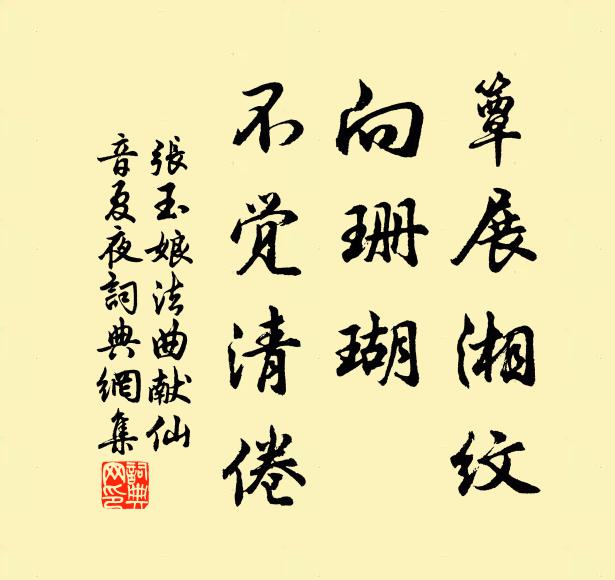 簟展湘纹
向珊瑚
不觉清倦
張玉娘法曲献仙
音夏夜詞典網集
詞典
网印